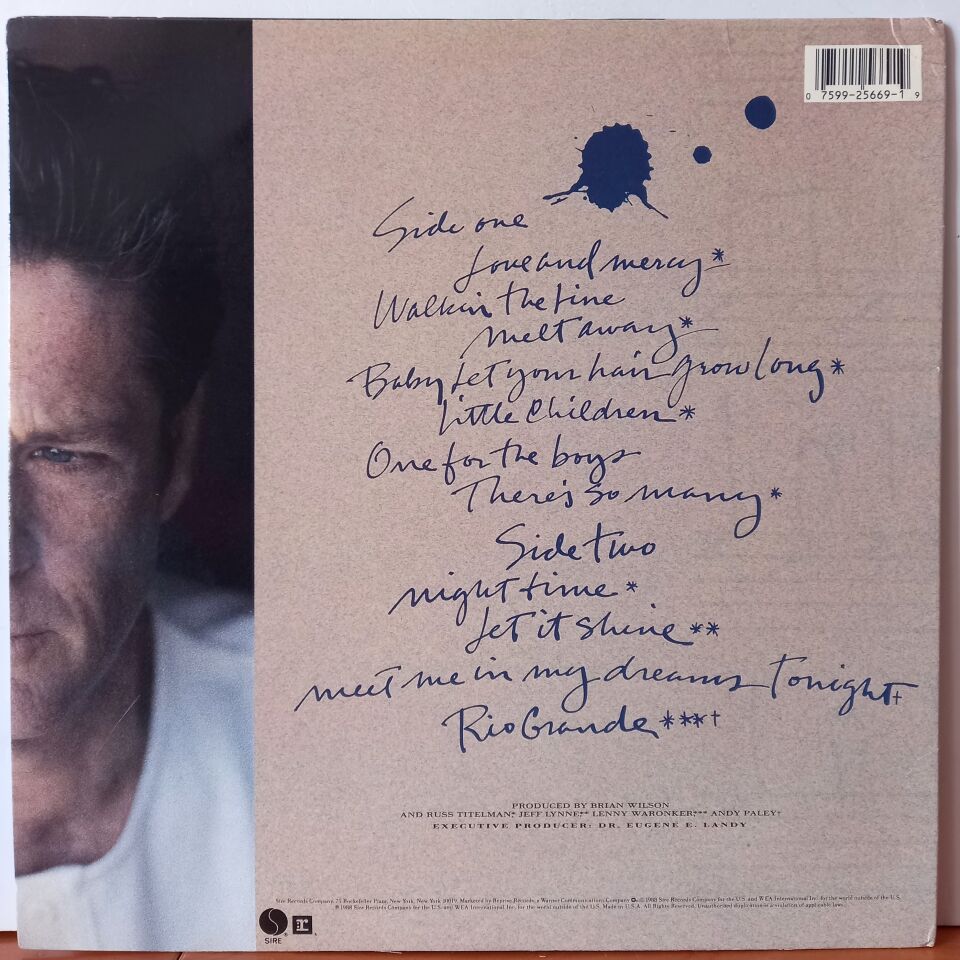 0 7599-25669-1 9
Side one
Love and mercy*
Walkin' the line
Melt away*
Baby Let your hair grow long*
Little Children*
One for the boys
There's so many*
Side two
night time*
Let it shine**
meet me in my dreams Tonight†
Rio Grande***†
PRODUCED BY BRIAN WILSON
AND RUSS TITELMAN,* JEFF LYNNE,** LENNY WARONKER,*** ANDY PALEY†
EXECUTIVE PRODUCER: DR. EUGENE E. LANDY
Sire Records Company, 75 Rockefeller Plaza, New York, New York 10019. Marketed by Reprise Records, a Warner Communications Company. © 1988 Sire Records Company for the U.S. and WEA International Inc. for the world outside of the U.S.
℗ 1988 Sire Records Company for the U.S. and WEA International Inc. for the world outside of the U.S. Made in U.S.A. All Rights Reserved. Unauthorized duplication is a violation of applicable laws.
SIRE
r